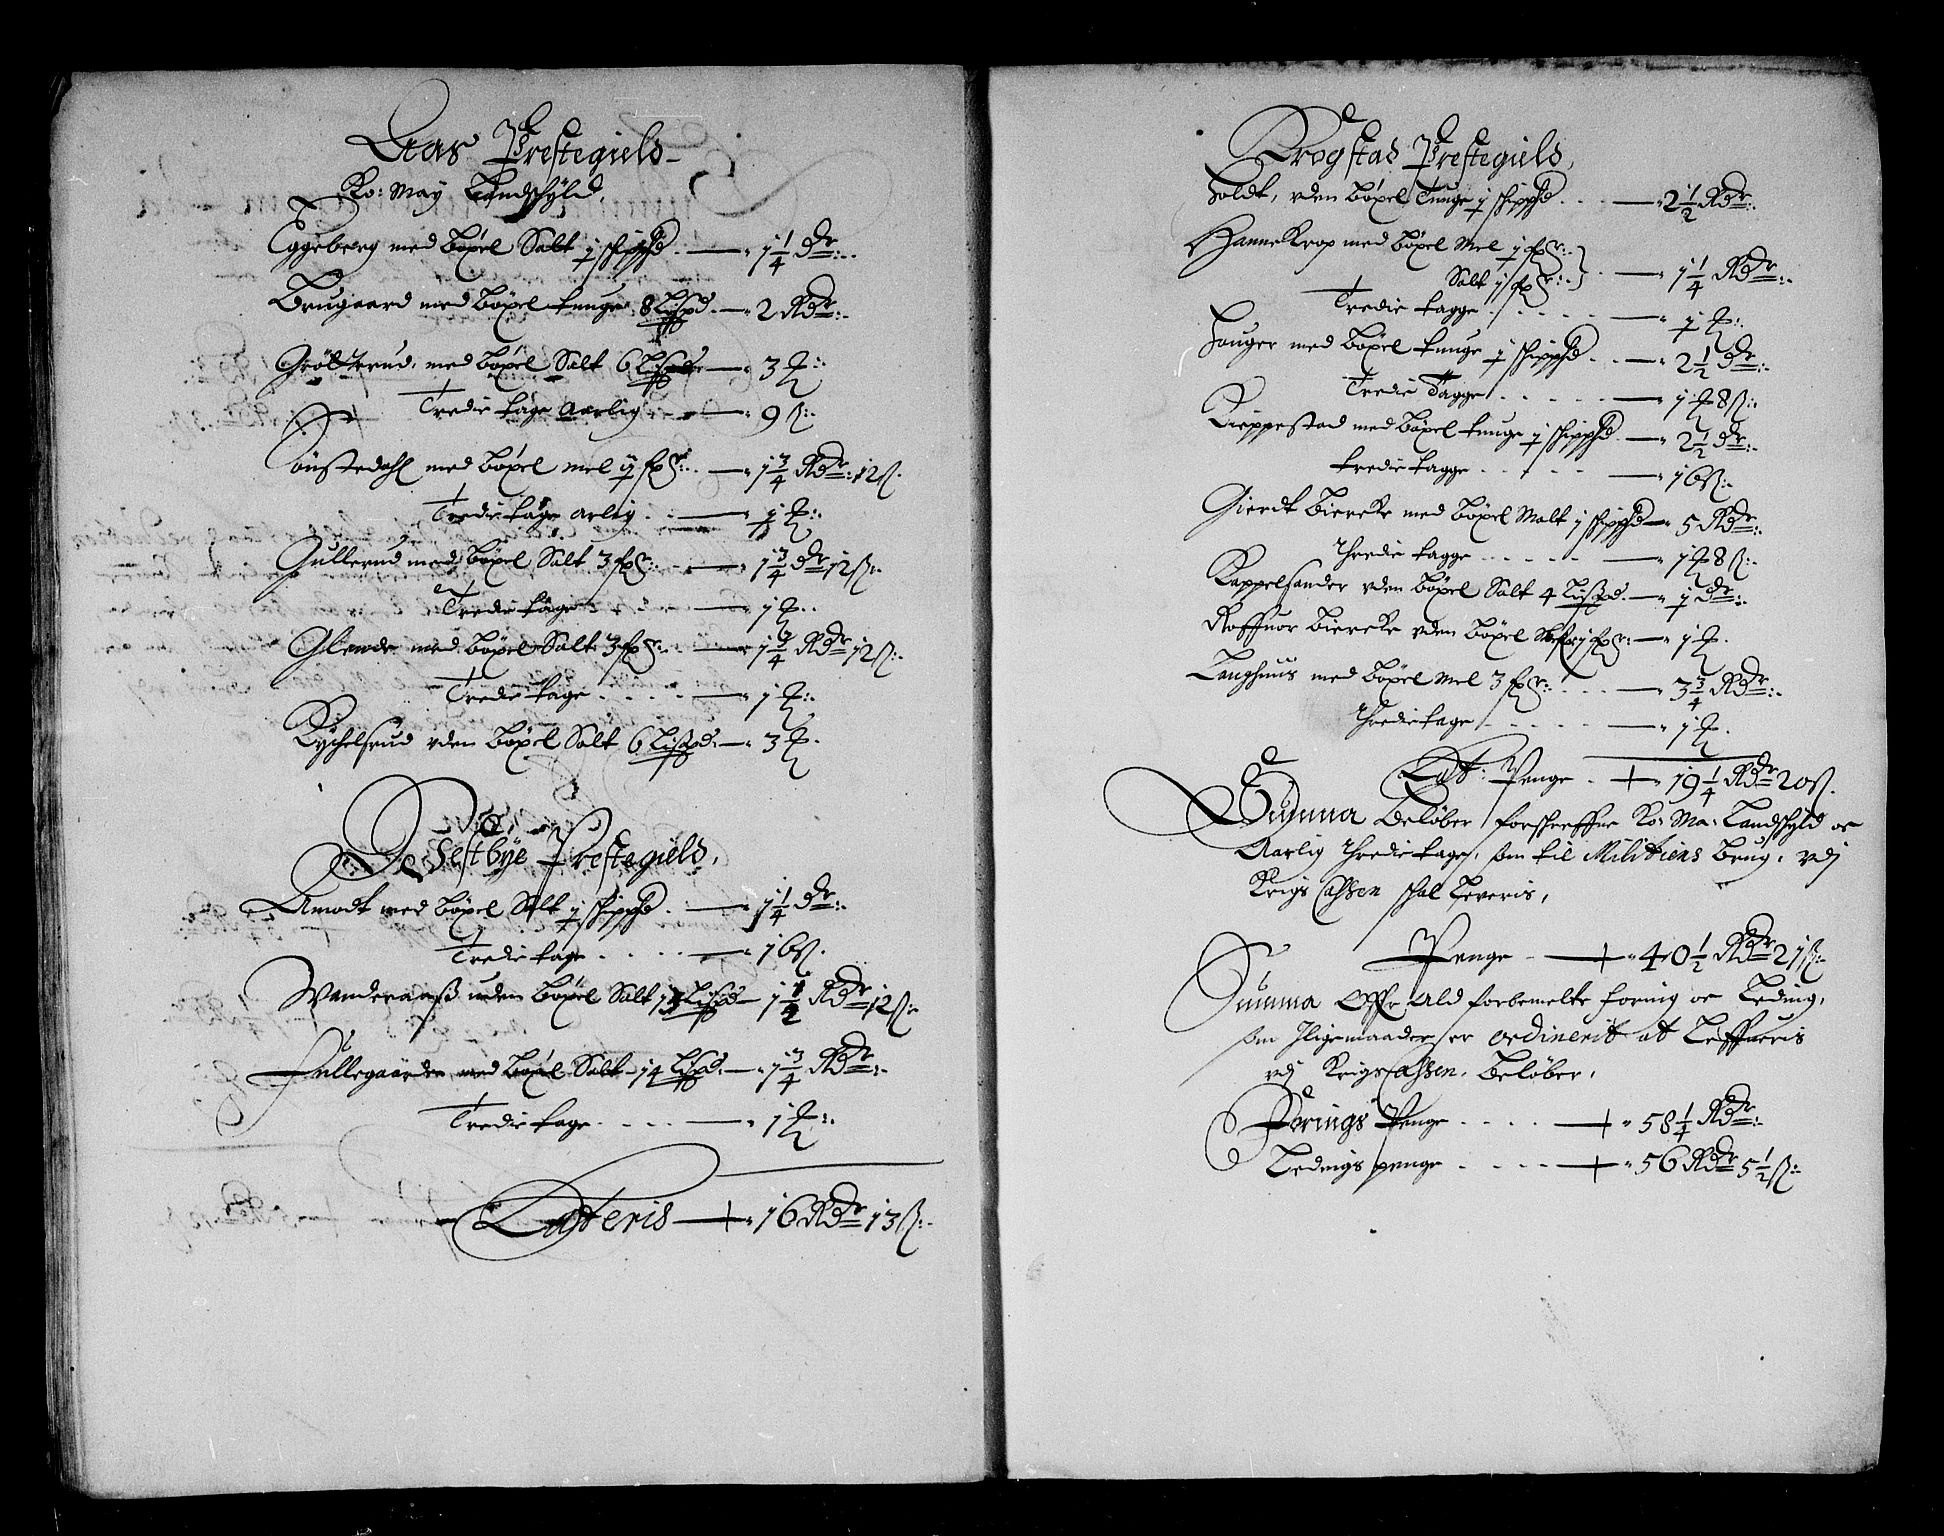 Aas Prestegield
Ko: May Landschyld,
Eggeberg med Böxel Salt j schippd. — 1 1/4 Dr:
Brugaard med Böxel tunge 8 Lispd. — 2 Rdr:
Gröttrud, med Böxel Salt 6 Lispd — 3
Tredie tage Aarlig — 9 ß:
med Böxel mel — 1 3/4 Rdr: 12 ß.
Tredie tage arlig. — 1
Gullerud med Böxel Salt 3 — 1 3/4 Dr 12 ß:
Tredie tage — 1
Glende med Böxel Salt 3 — 1 3/4 Rdr 12 ß:
Tredie tage — 1
Kychelsrud vden Böxel Salt 6 Lispd: — 3
Westbye Prestegield,
Amodt med Böxel Salt j schippd. — 1 1/4 Dr:
Tredie tage — 16 ß.
Wanderaaß uden Böxel Salt Lispd — 1 1/2 Rdr 12 ß:
Hullegaarden med Böxel Salt 14 Lispd: — 1 3/4 Rdr:
Tredie tage — 1
Lateris — 16 Rdr 13 ß:
Krogstad Prestegield,
Holdt, vden Böxel Tunge j schippd — 2 1/2 Rdr:
Hannekrop med Böxel Mel j
Salt j — 1 1/4 Rdr:
Tredie tagge — 1
Houger med Böxel tunge j schippd — 2 1/2 Dr:
Tredie Tagge — 1 8 ß:
Kieppestad med Böxel tunge j schippd. — 2 1/2 Dr:
tredie tagge — 16 ß:
Gierdt Biercke med Böxel Malt j schippd — 5 Rdr:
Thredie tagge — 1 8 ß:
Kappelsander vden Böxel Salt 4 Lispd. — 1 Dr:
Biercke vden Böxel — 1
Langhuus med Böxel Mel 3 — 3 3/4 Rdr:
Thredie tage — 1
Lat: Penge — 19 1/4 Rdr 20 ß.
Summa Belöber forschreffne Ko: Ma: Landschyld oc
Aarlig Thredie tage, som til Militiens Brug, vdj
Krigs Cassen schal Leveris,
Penge — 40 1/2 Rdr 21 ß:
Summa Offr. Ald forbemelte foring oc Leding,
som Iligemaader er ordinerit at Leffueris
vdj Krigs Cassen, Belöber,
Forings Penge — 58 1/4 Rdr:
Ledings penge — 56 Rdr 5 1/2 ß: